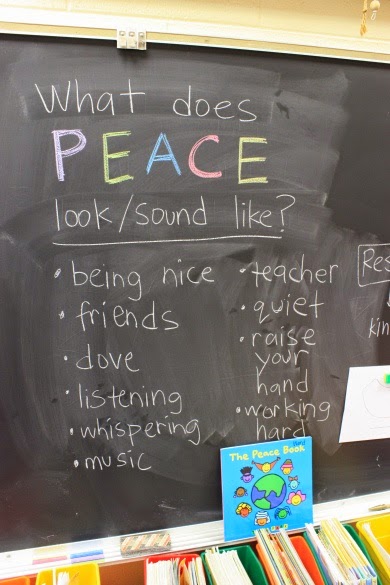 What does
PEACE
look/sound like?
• being nice
• friends
• dove
• listening
• whispering
• music
• teacher
• quiet
• raise
your
hand
• working
hard
Res
kin
The Peace Book